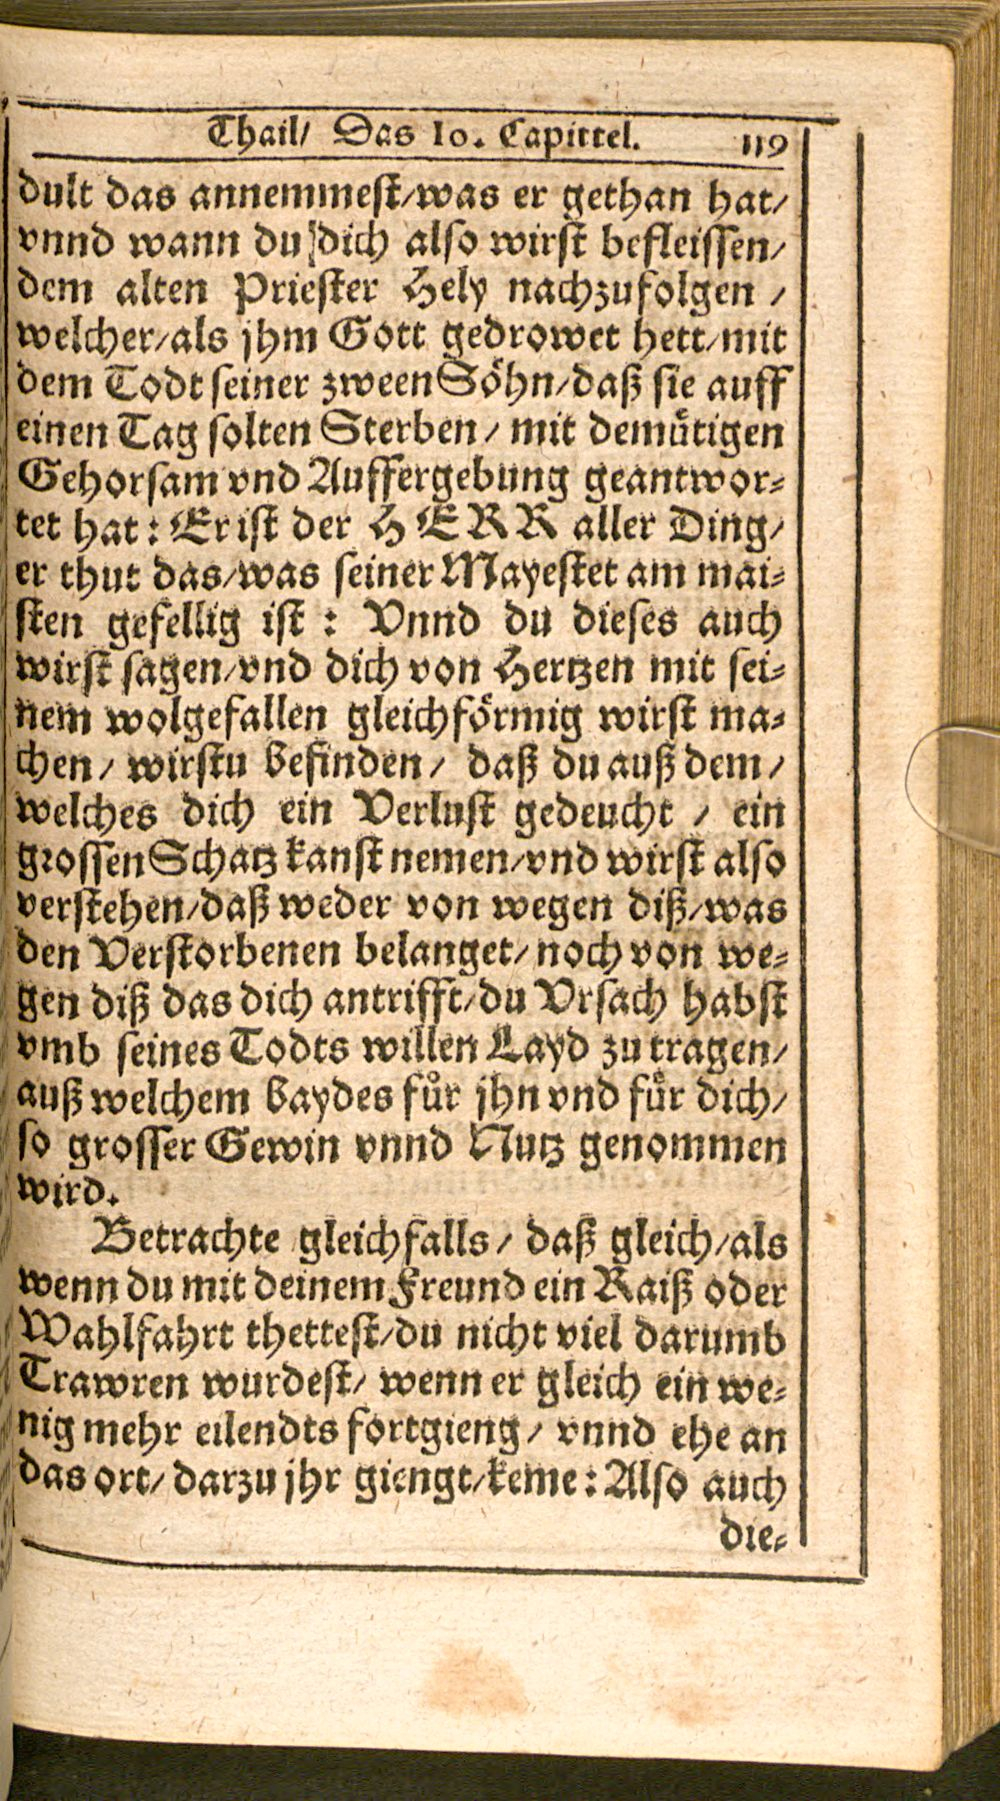 Thail/ Das 10. Capittel. 119
dult das annemmest/was er gethan hat/
vnnd wann du dich also wirst befleissen/
dem alten Priester Hely nachzufolgen /
welcher/als jhm Gott gedrowet hett/mit
dem Todt seiner zween Söhn/daß sie auff
einen Tag solten Sterben / mit demütigen
Gehorsam vnd Auffergebung geantwor-
tet hat: Er ist der HERR aller Ding/
er thut das/was seiner Mayestet am mai-
sten gefellig ist : Vnnd du dieses auch
wirst sagen/vnd dich von Hertzen mit sei-
nem wolgefallen gleichförmig wirst ma-
chen/ wirstu befinden/ daß du auß dem/
welches dich ein Verlust gedeucht / ein
grossen Schatz kanst nemen/vnd wirst also
verstehen/daß weder von wegen diß/was
den Verstorbenen belanget/noch von we-
gen diß das dich antrifft/du Vrsach habst
vmb seines Todts willen Layd zu tragen/
auß welchem baydes für jhn vnd für dich/
so grosser Gewin vnnd Nutz genommen
wird.
Betrachte gleichfalls/ daß gleich/als
wenn du mit deinem Freund ein Raiß oder
Wahlfahrt thettest/du nicht viel darumb
Trawren wurdest/ wenn er gleich ein we-
nig mehr eilendts fortgieng/ vnnd ehe an
das ort/ darzu jhr giengt/keme: Also auch
die-